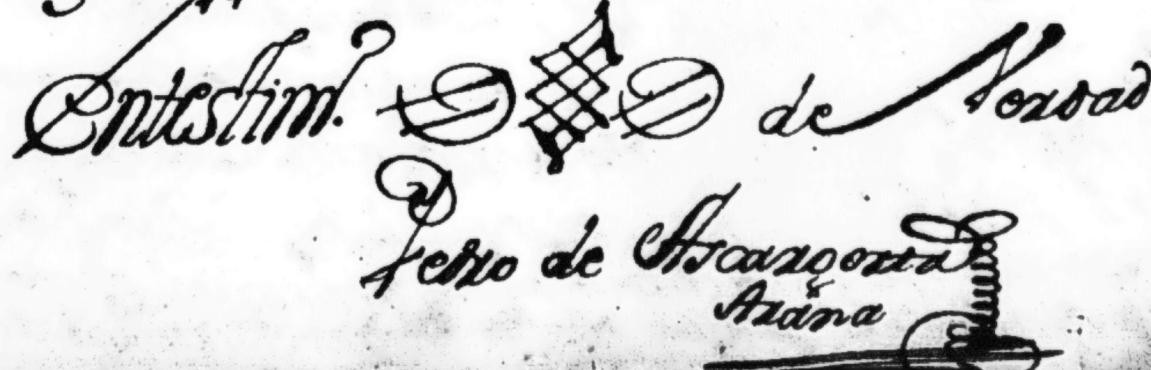 En testim.º de Verdad
Pedro de Ascargorta
Arana